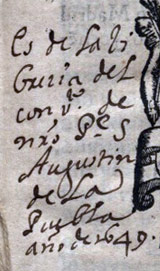 Es de la li
breria del
conv.to de
nro Pe S
Augustin
de La
Puebla
año de 1649.